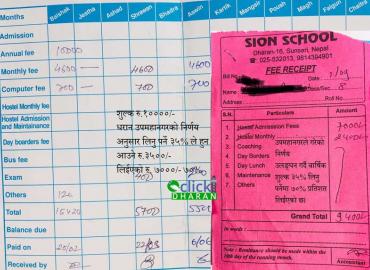 Months
Baishak
Jestha
Ashad
Shrawan
Bhadra
Aswin
Kartik
Mangsir
Poush
Magh
Falgun
Chaitra
Admission
Annual fee 10000
Monthly fee 4600 4600 4600
Computer fee 700 700 700
Hostel Monthly fee
Hostel Admission
and Maintainance
Day boarders fee
Bus fee
Exam
Others 120
Total 15420 5700
Balance due
Paid on 25/02 22/03 6/06
Received by
शुल्क रु.१००००/-
धरान उपमहानगरको निर्णय
अनुसार लिनु पर्ने ३५% ले हुन
आउने रु.३५००/-
लिईएको रु. ७०००/- ७०%
click
DHARAN
SION SCHOOL
Dharan-16, Sunsari, Nepal
025-532013, 9814394901
FEE RECEIPT
Bill No
Address
Class/Sec 8
Roll No
S.N. Particulars Amount
1. Hostel Admission Fees 7000/-
2. Hostel Monthly
3. Coaching
4. Day Burders
5. Day Lunch
6. Maintenance
7. Others
उपमहानगरले गरेको
निर्णय
उलङघन गर्दै वार्षिक
शुल्क ३५% लिनु
पर्नेमा ७०% प्रतिशत
लिईएको छ।
Grand Total
Note : Remittance should be made within the
10th day of the running month.
Accountant